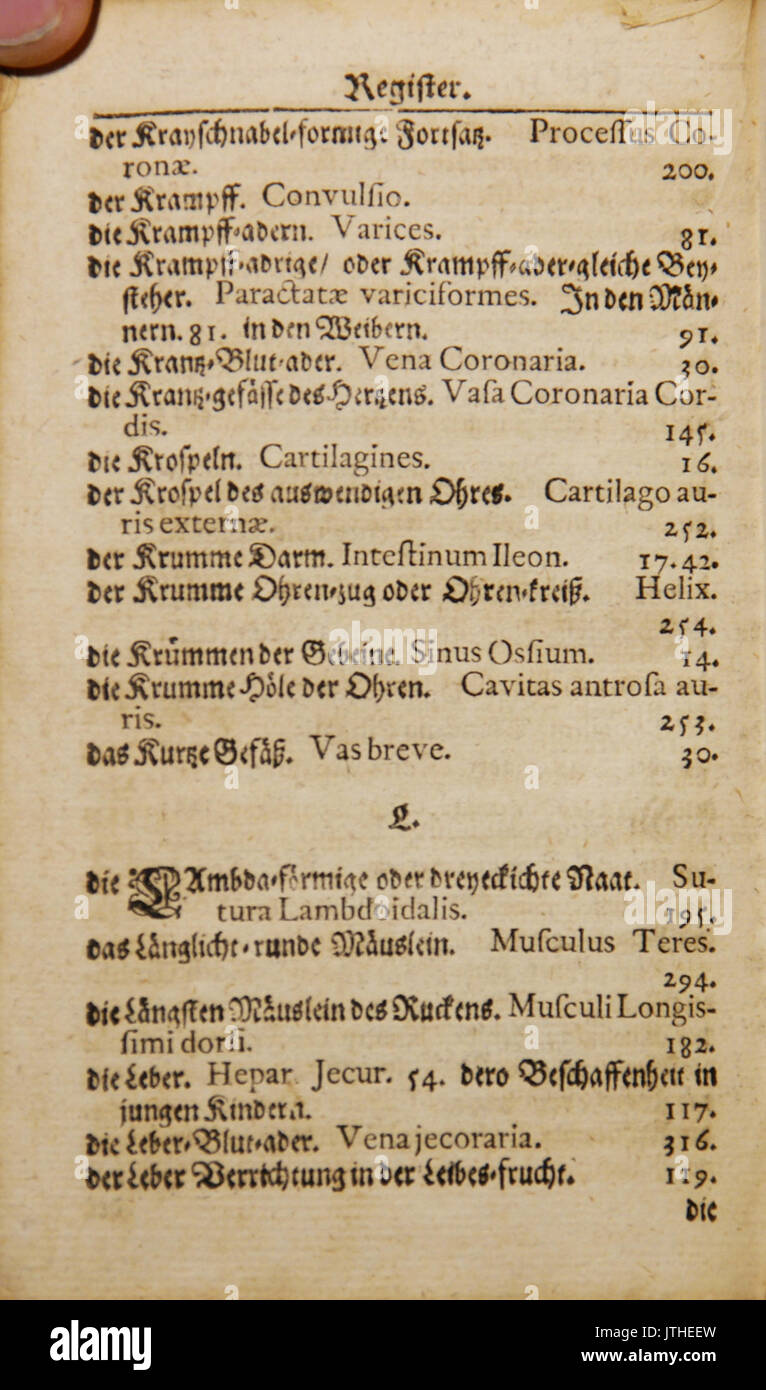 Register.
der Krayſchnabel-formige Fortſatz. Proceſſus Co-
ronæ. 200.
der Krampff. Convulſio.
die Krampff-adern. Varices. 81.
die Krampff-adrige/ oder Krampff-ader-gleiche Bey-
ſteher. Paractatæ variciformes. In den Män-
nern. 81. in den Weibern. 91.
die Krantz-Blut-ader. Vena Coronaria. 30.
die Krantz-gefäſſe des Hertzens. Vaſa Coronaria Cor-
dis. 145.
die Kroſpeln. Cartilagines. 16.
der Kroſpel des auswendigen Ohres. Cartilago au-
ris externæ. 252.
der Krumme Darm. Inteſtinum Ileon. 17.42.
der Krumme Ohren-zug oder Ohren-kreiß. Helix.
254.
die Krům̃en der Gebeine. Sinus Oſſium. 14.
die Krumme Höle der Ohren. Cavitas antroſa au-
ris. 253.
das Kurtze Gefäß. Vas breve. 30.
L.
die LAmbda-förmige oder dreyeckichte Naat. Su-
tura Lambdoidalis. 195.
das Länglicht-runde Mäuslein. Muſculus Teres.
294.
die Längſten Mäuslein des Ruckens. Muſculi Longis-
ſimi dorſi. 182.
die Leber. Hepar Jecur. 54. dero Beſchaffenheit in
jungen Kindern. 117.
die Leber-Blut-ader. Vena jecoraria. 316.
der Leber Verrichtung in der Leibes-frucht. 119.
die
alamy
Image ID: JTHEEW
www.alamy.com